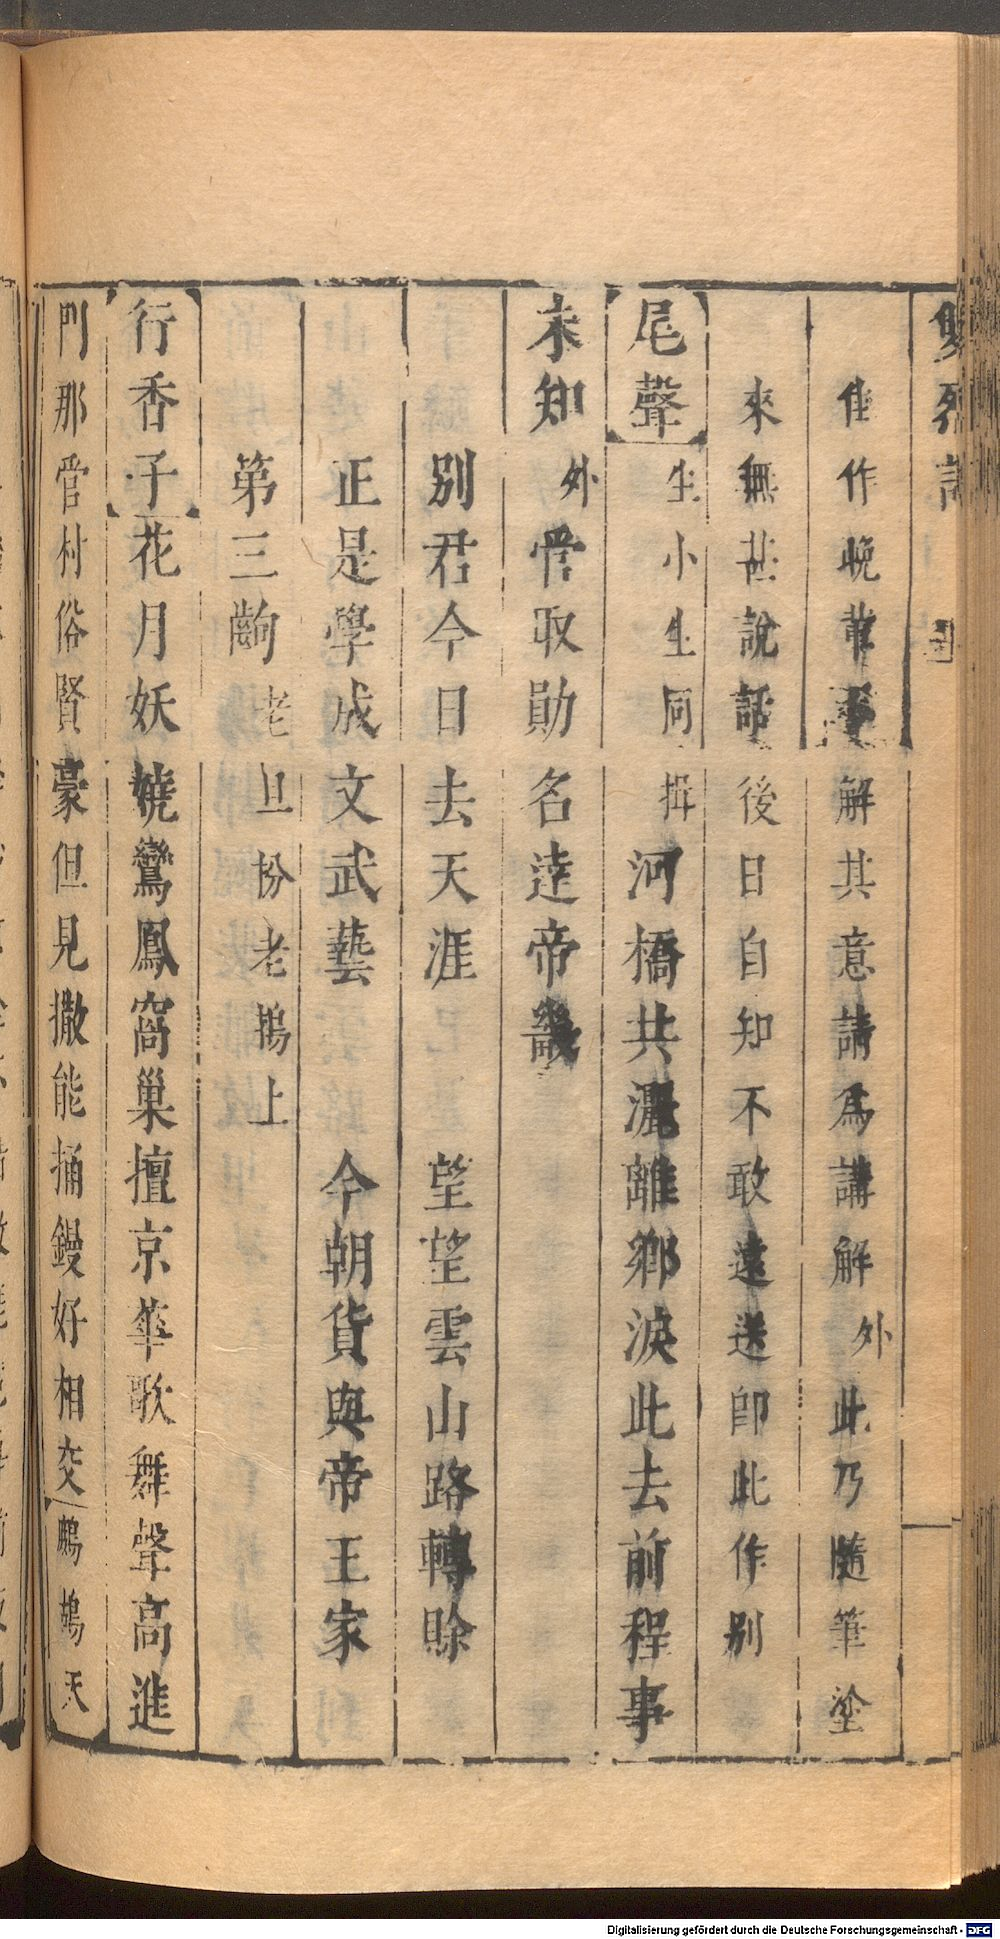 雙烈記
佳作晚輩解其意請爲講解外此乃隨筆塗
來無甚說話後日自知不敢遠送卽此作别
尾聲生小生同揖河橋共灑離鄉淚此去前程事
未知外管取勛名達帝畿
别君今日去天涯 望望雲山路轉賒
正是學成文武藝 今朝貨與帝王家
第三齣老旦扮老鴇上
行香子花月妖嬈鸞鳳窩巢擅京華歌舞聲高進
門那管村俗賢豪但見撒能捅鏝好相交鷓鴣天
Digitalisierung gefördert durch die Deutsche Forschungsgemeinschaft - DFG